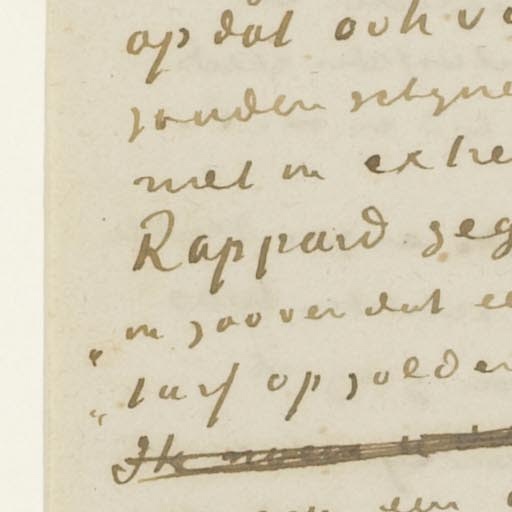 op dat ook v
zouden schyne
met in extre
Rappard geg
" in zoover dat ee
" turf op zolder
Ik
een